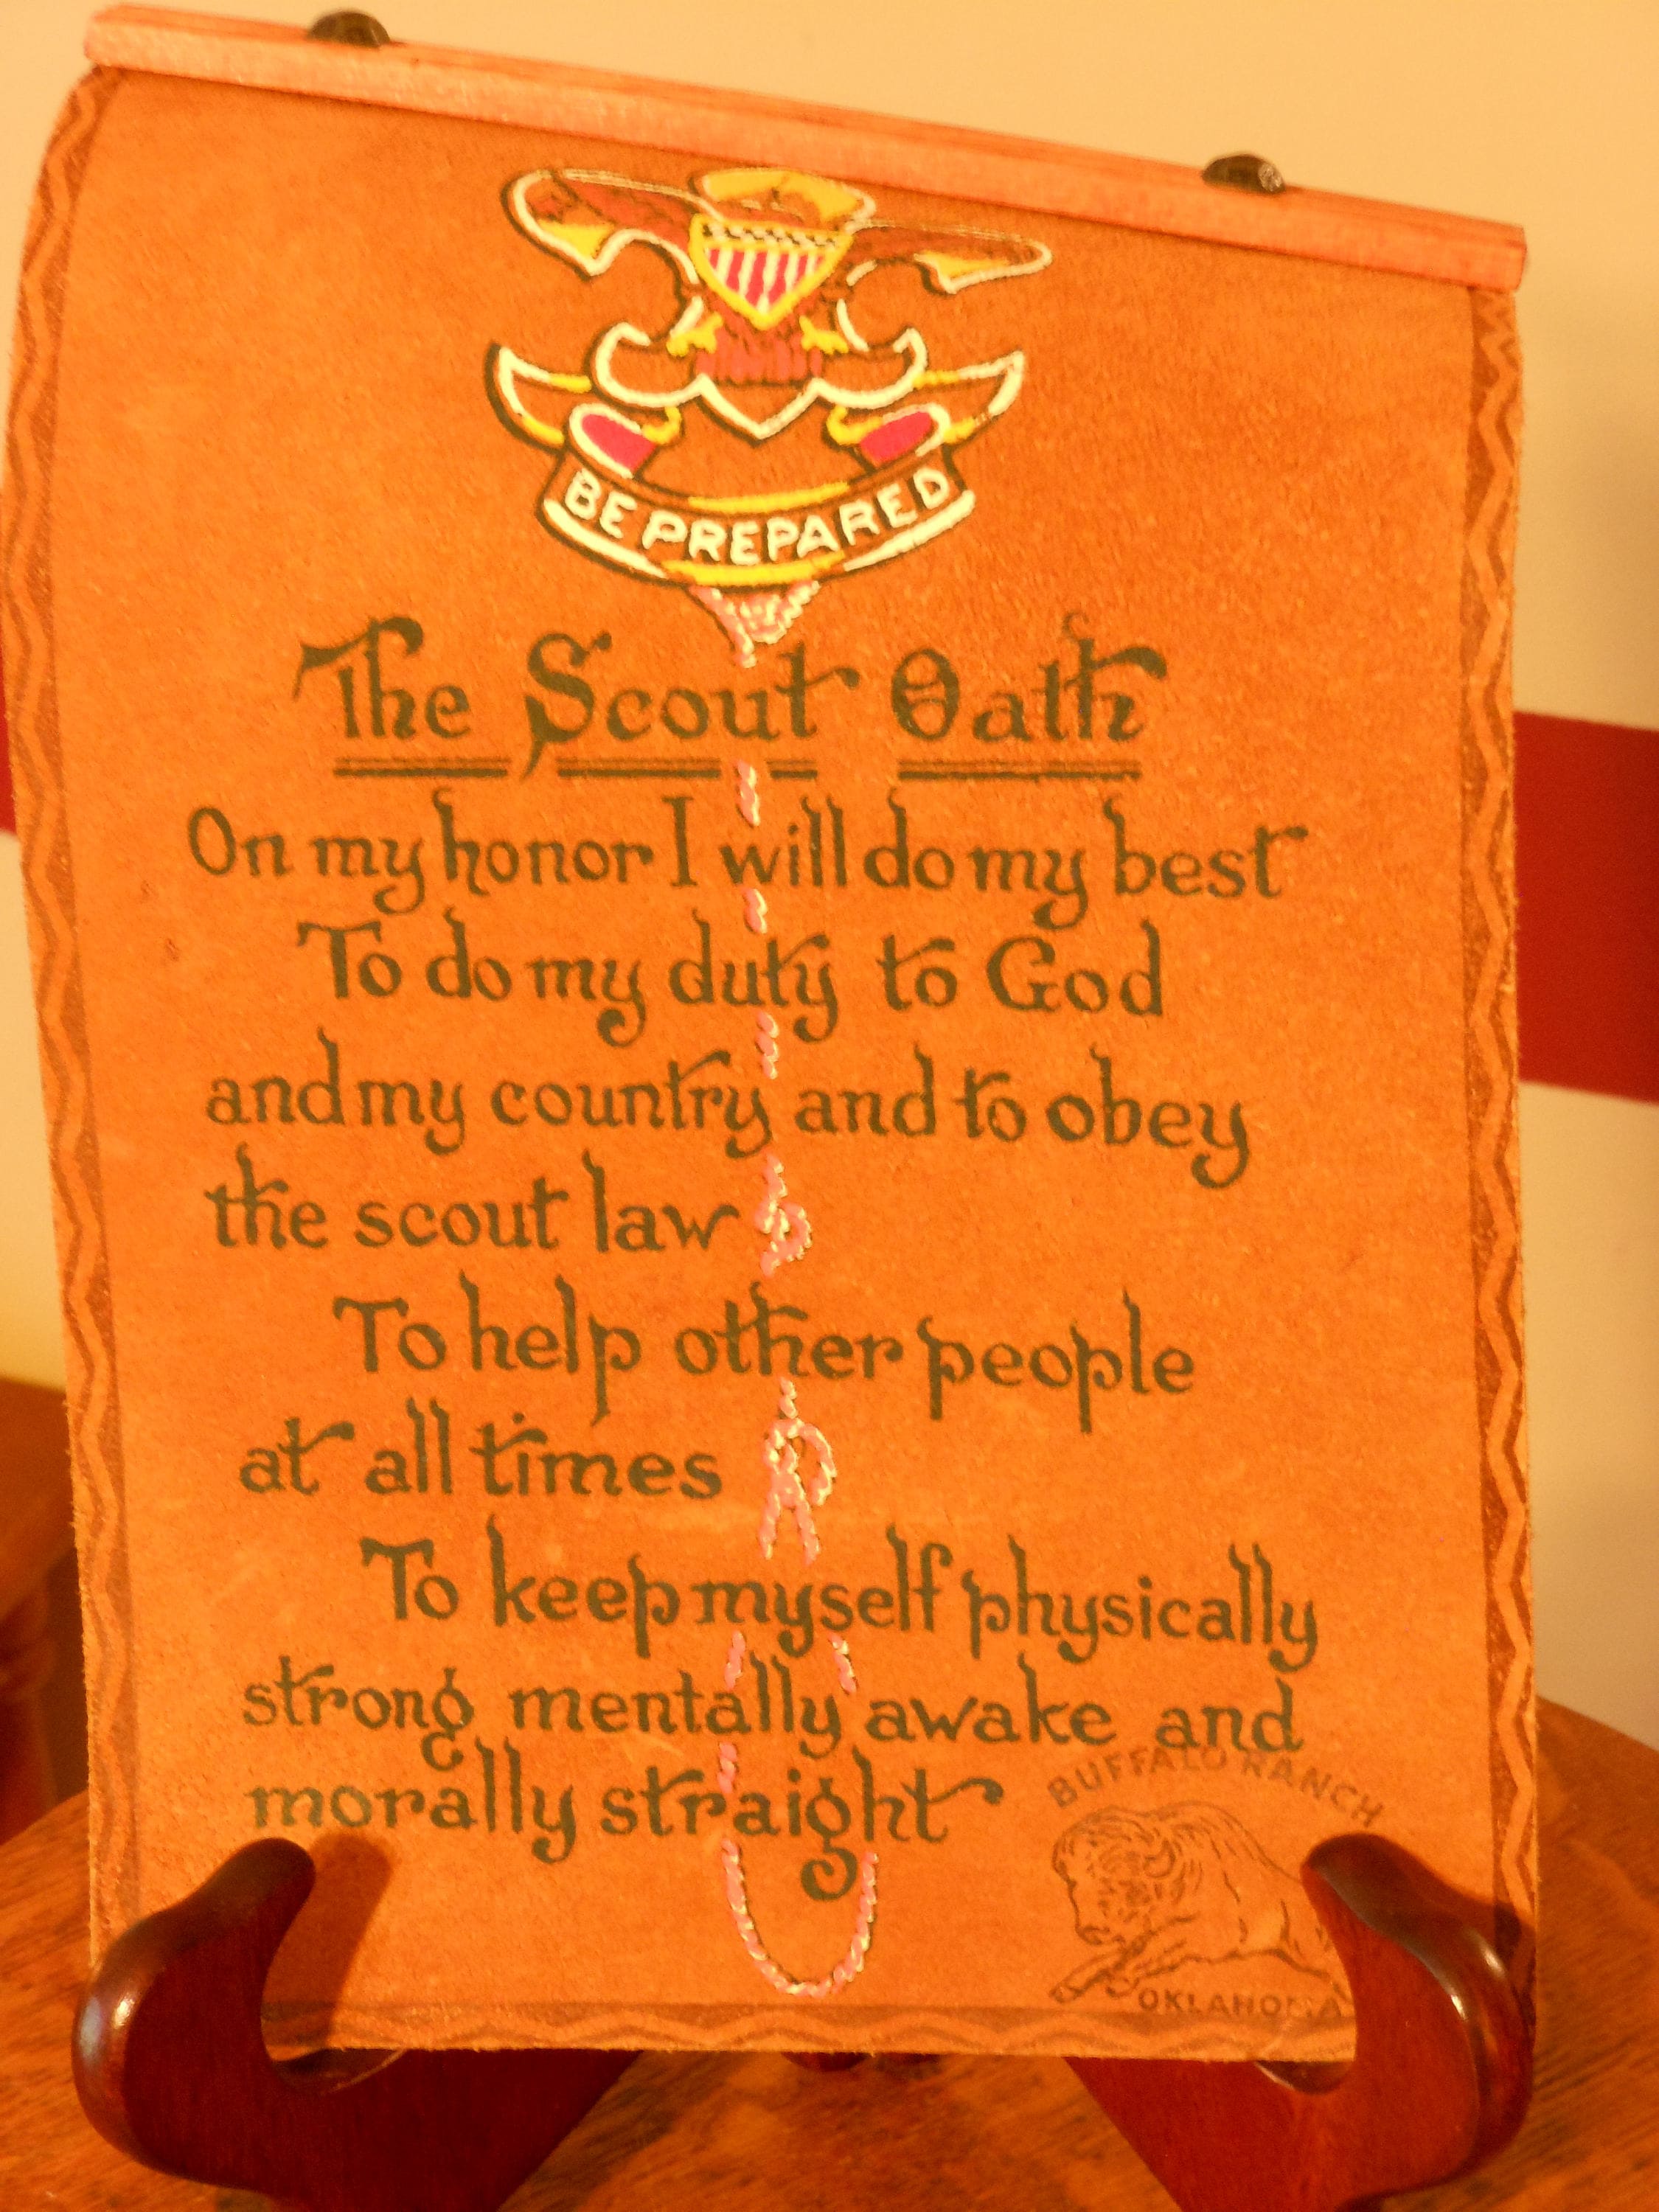 BE PREPARED
The Scout Oath
On my honor I will do my best
To do my duty to God
and my country and to obey
the scout law
To help other people
at all times
To keep myself physically
strong mentally awake and
morally straight
BUFFALO RANCH
OKLAHOMA